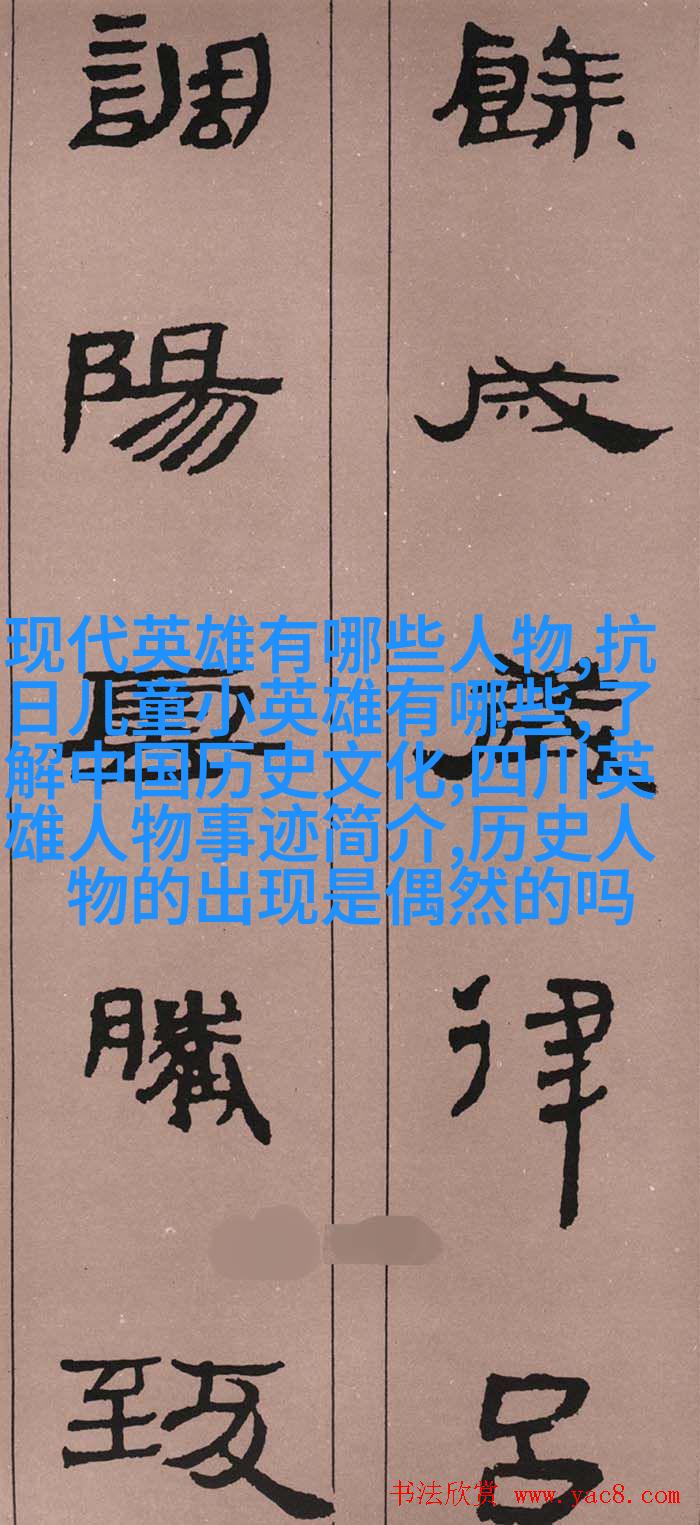 餘成律呂
調陽騰致
现代英雄有哪些人物,抗
日儿童小英雄有哪些,了
解中国历史文化,四川英
雄人物事迹简介,历史人
物的出现是偶然的吗
书法欣赏 www.yac8.com